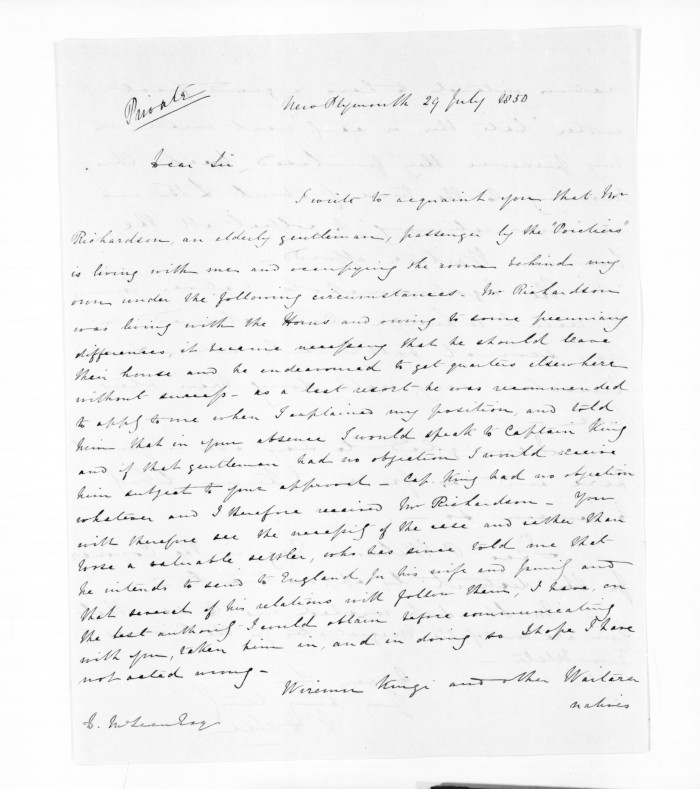 Private
New Plymouth 29 July 1850
Dear Sir
I write to acquaint you that Mr
Richardson, an elderly gentleman, passenger by the "Poictiers"
is living with me and occupying the room behind my
own under the following circumstances. Mr Richardson
was living with the Horns and owing to some pecuniary
differences, it became necessary that he should leave
their house and he endeavoured to get quarters elsewhere
without success - as a last resort he was recommended
to apply to me when I explained my position, and told
him that in your absence I would speak to Captain King
and if that gentleman had no objection I would receive
him subject to your approval - Cap. King had no objection
whatever and I therefore received Mr Richardson - You
will therefore see the necessity of the case and rather than
loose a valuable settler, who has since told me that
he intends to send to England for his wife and family and
that several of his relations will follow them, I have, on
the best authority I could obtain before communicating
with you, taken him in, and in doing so I hope I have
not acted wrong -
Wiremu Kingi and other Waitara
natives
D. McLean Esq